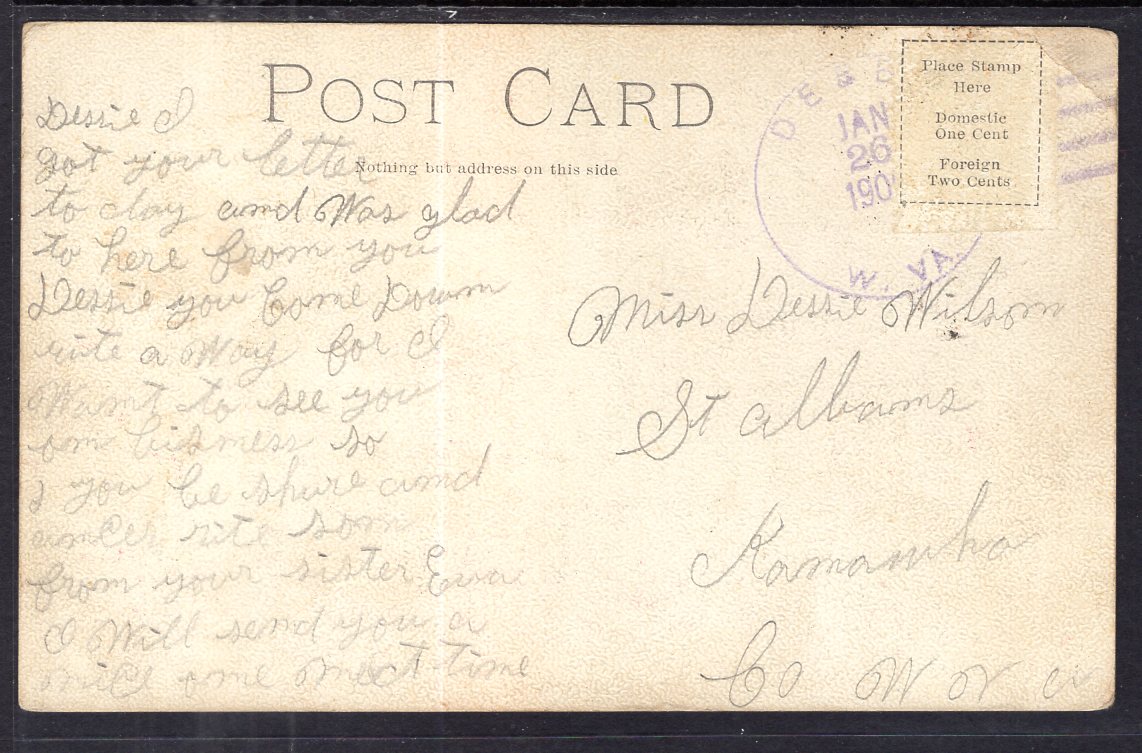 POST CARD
Nothing but address on this side
Place Stamp
Here
Domestic
One Cent
Foreign
Two Cents
JAN
26
190
W. VA.
Dessie I
got your letter
to day and Was glad
to here from you
Dessie you Come Down
rite a Way for I
Wamt to see you
om bisness so
you be shure and
rite som
from your sister Eva
I Will send you a
mice ome mext time
Miss Dessie Wilson
St albams
Kanawha
Co W Va